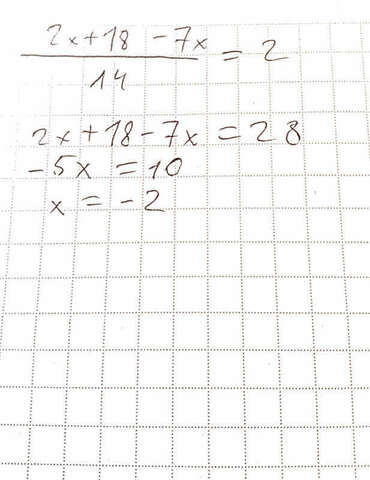 2x+18 -7x = 2
14
2x+18-7x=28
-5x =10
x = -2